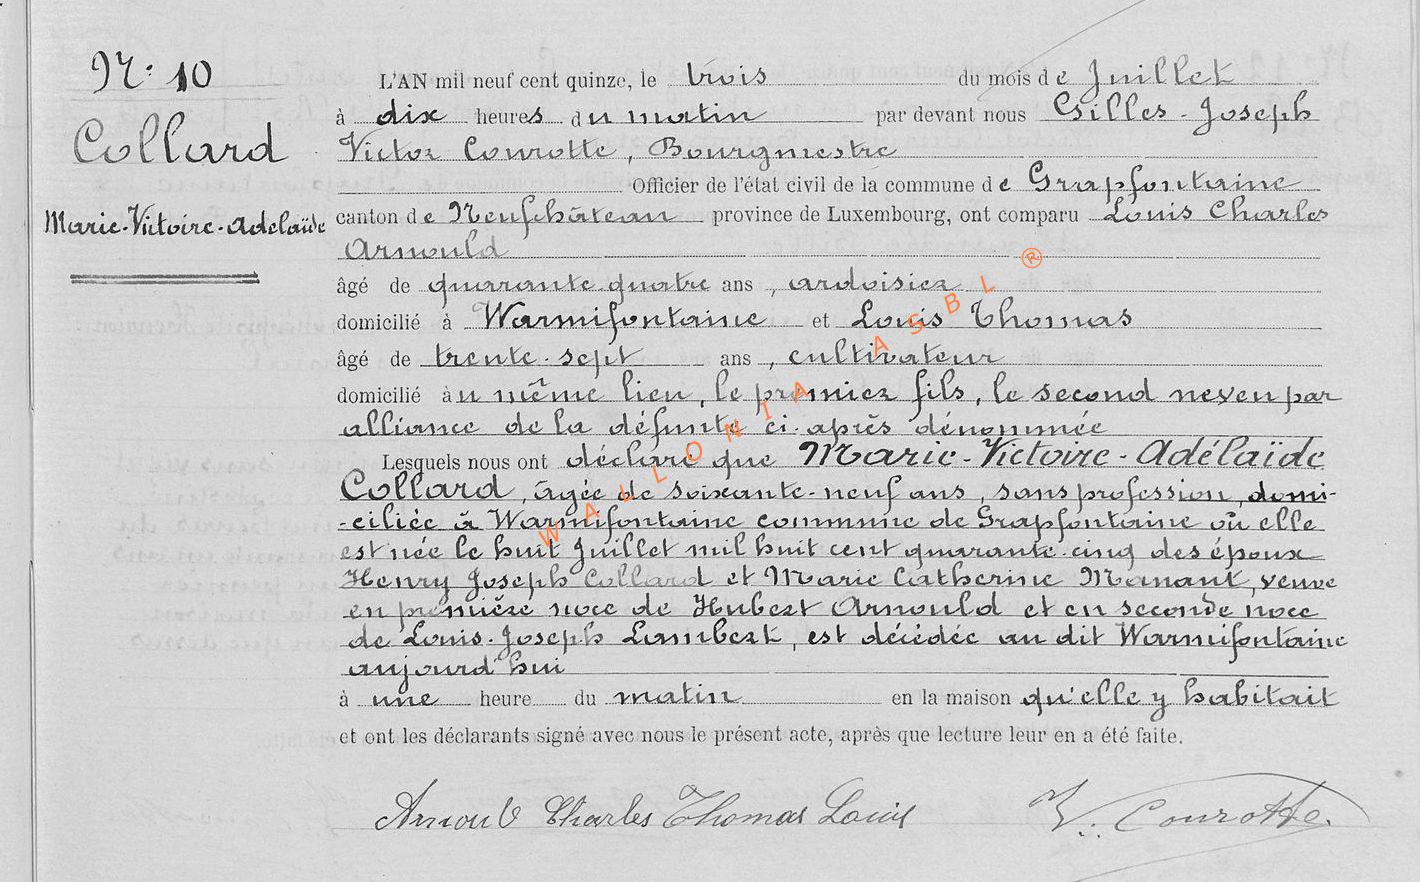 N°: 10
Collard
Marie-Victoire-Adelaïde
L'AN mil neuf cent quinze, le trois du mois de Juillet
à dix heures du matin par devant nous Gilles-Joseph
Victor Courotte, Bourgmestre
Officier de l'état civil de la commune de Grapfontaine
canton de Neufchâteau province de Luxembourg, ont comparu Louis Charles
Arnould
âgé de quarante quatre ans, ardoisier
domicilié à Warmifontaine et Louis Thomas
âgé de trente-sept ans, cultivateur
domicilié au même lieu, le premier fils, le second neveu par
alliance de la défunte ci-après dénommée
Lesquels nous ont déclaré que Marie-Victoire-Adélaïde
Collard, âgée de soixante-neuf ans, sans profession, domi-
-ciliée à Warmifontaine commune de Grapfontaine où elle
est née le huit Juillet mil huit cent quarante-cinq des époux
Henry Joseph Collard et Marie Catherine Manant, veuve
en première noce de Hubert Arnould et en seconde noce
de Louis-Joseph Lambert, est décédée au dit Warmifontaine
aujourd'hui
à une heure du matin en la maison qu'elle y habitait
et ont les déclarants signé avec nous le présent acte, après que lecture leur en a été faite.
Arnould Charles Thomas Louis V. Courotte.
WALLONIA ASBL ®